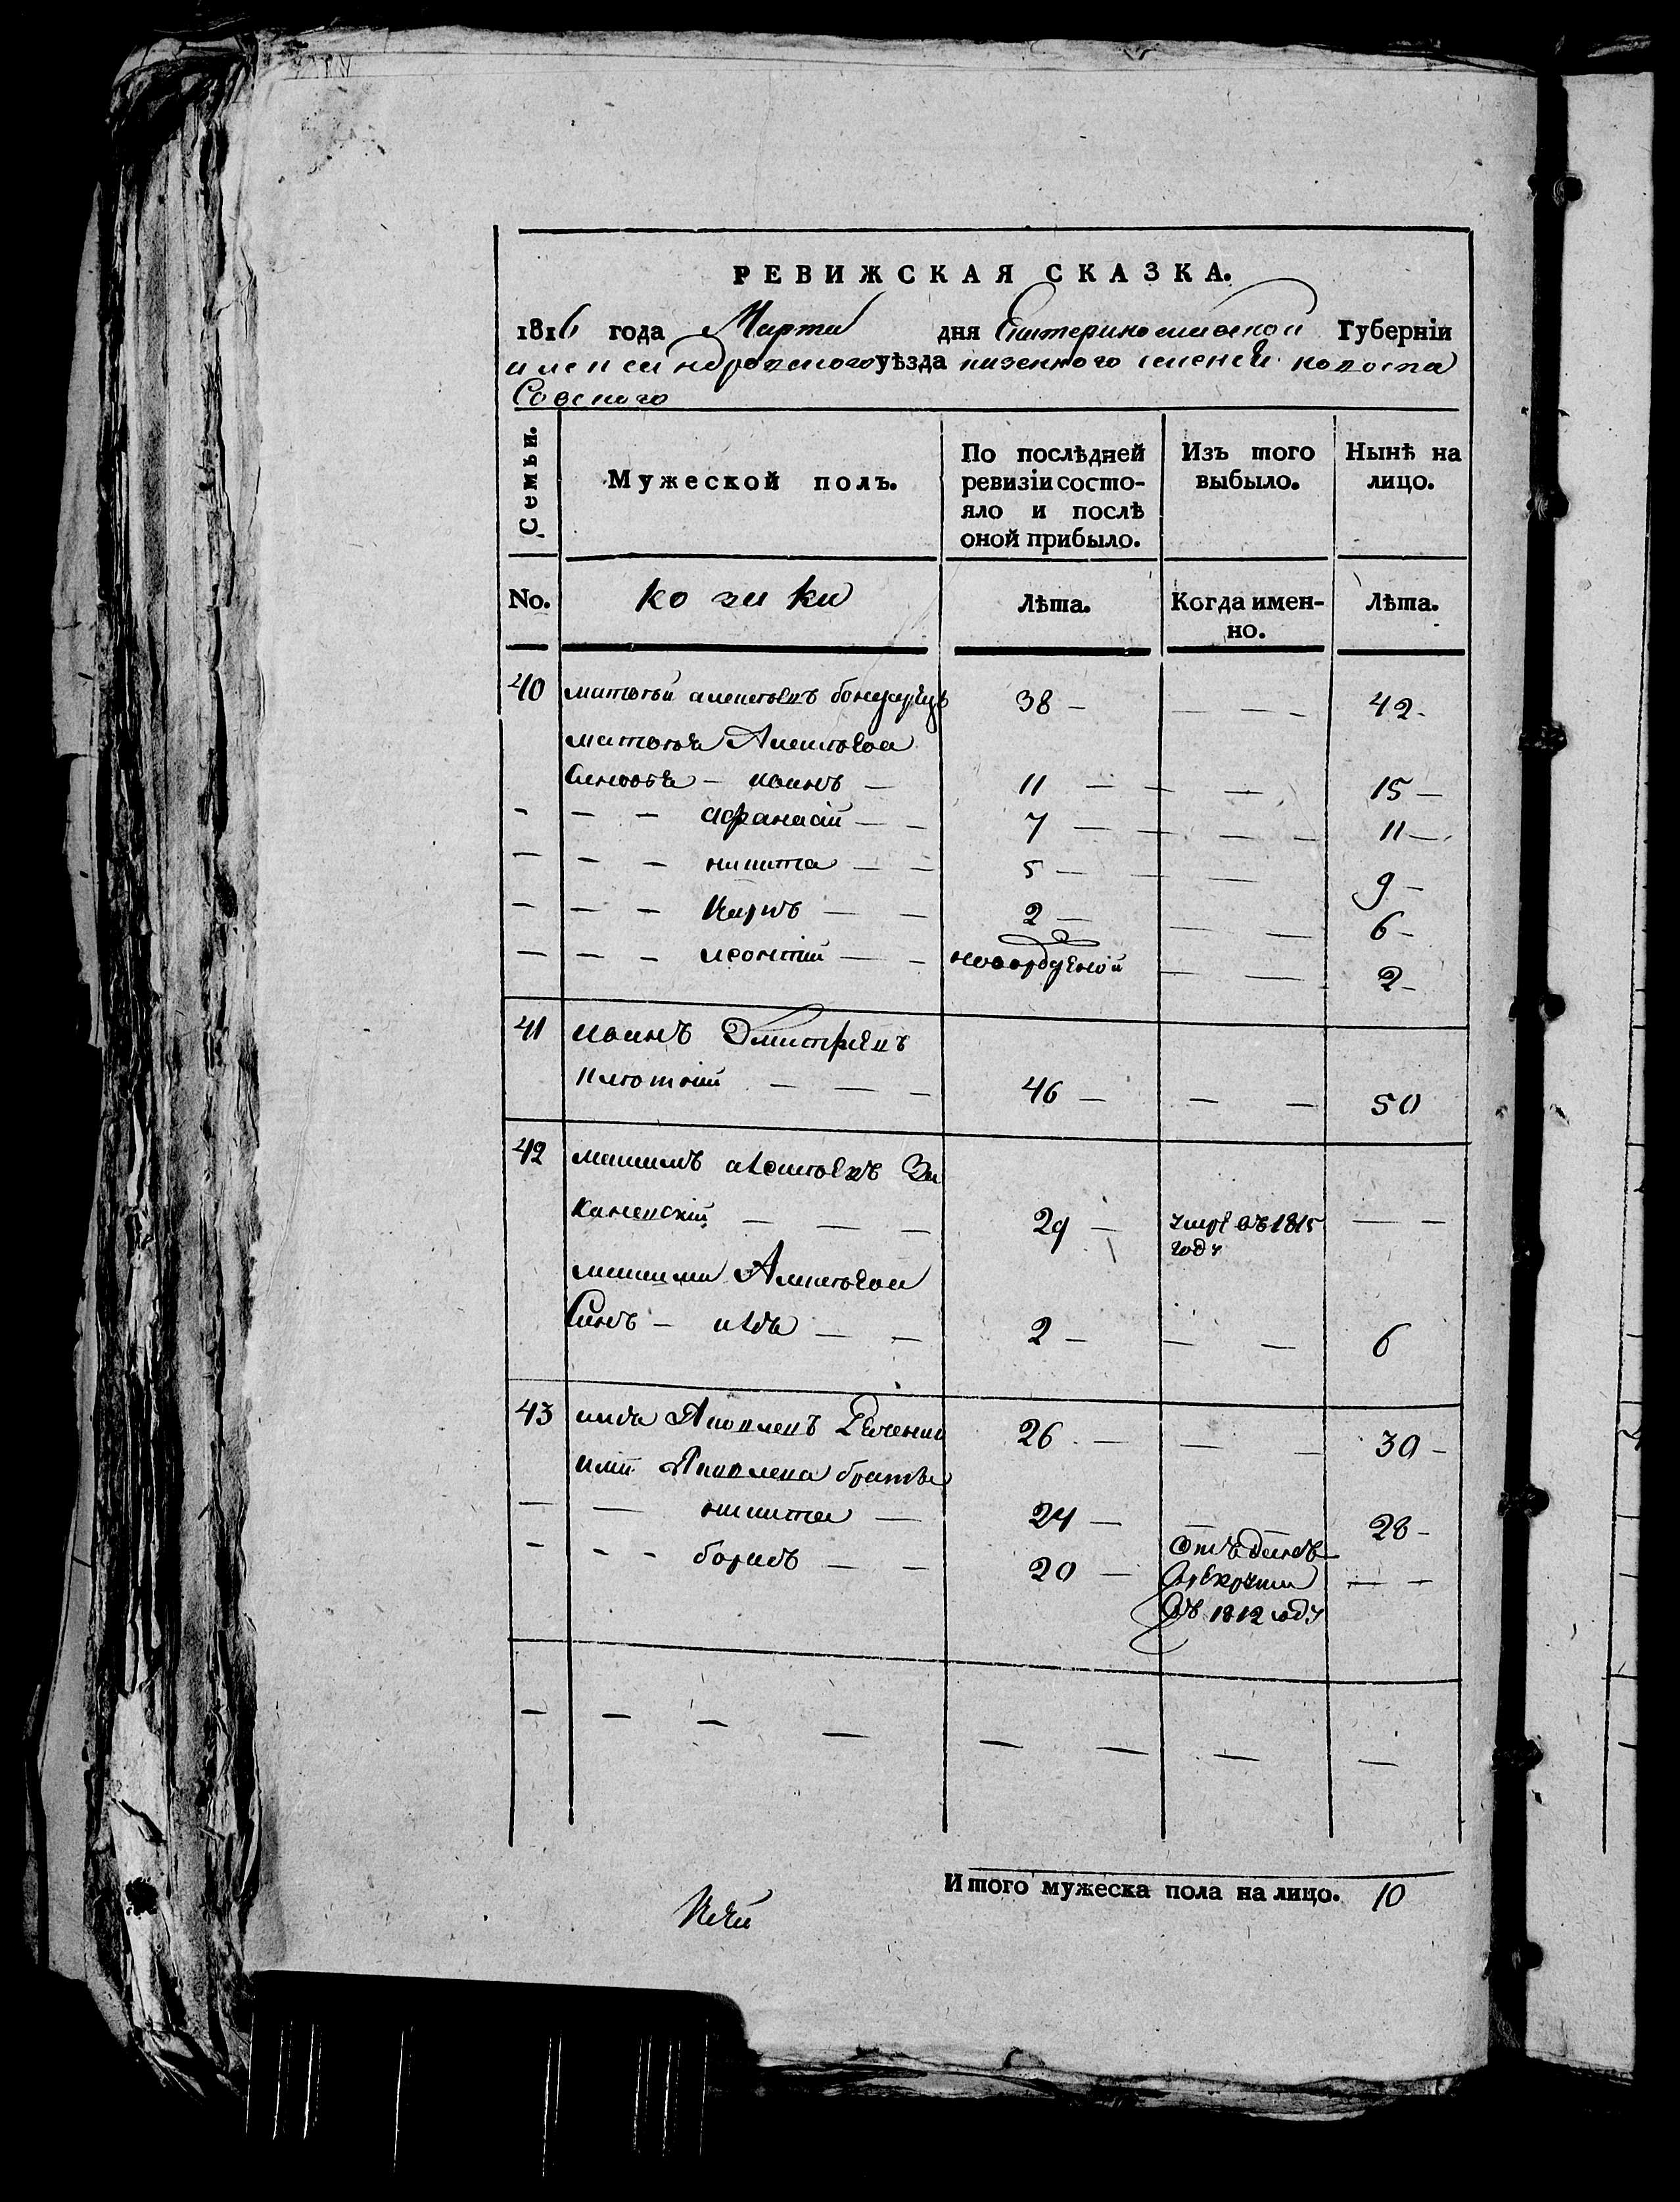 РЕВИЖСКАЯ СКАЗКА.
1816 года Марта дня Екатеринославской Губерніи
александровского уѣзда казенного селенія
Семьи.
Мужеской полъ.
По послѣдней ревизіи состо-
яло и послѣ
оной прибыло.
Изъ того
выбыло.
Нынѣ на
лицо.
No.
Лѣта.
Когда имен-
но.
Лѣта.
40 матвѣй алексѣевъ бондарецъ 38 — — — — 42 —
матвѣя Алексѣева
Синовья — иванъ — 11 — — — 15 —
— — — афанасій — — 7 — — — — 11 —
— — — никита — — 5 — — — 9 —
— — — Карпъ — — 2 — — — 6 —
— — — леонтій — — новорожденой — — 2 —
41 иванъ Дмитріевъ
— — — 46 — — — 50
42 максимъ алексѣевъ За
— — — 29 — умре въ 1815 — —
году
максима Алексѣева
Синъ — — — 2 — — — 6
43 Яковлевъ 26 — — — 30 —
Яковлева братья
— — никита — 24 — — — 28 —
— — — борисъ — — 20 — Отъданъ — —
Врекрути
Въ 1812 году
— — — — — — — —
Итого мужеска пола на лицо. 10